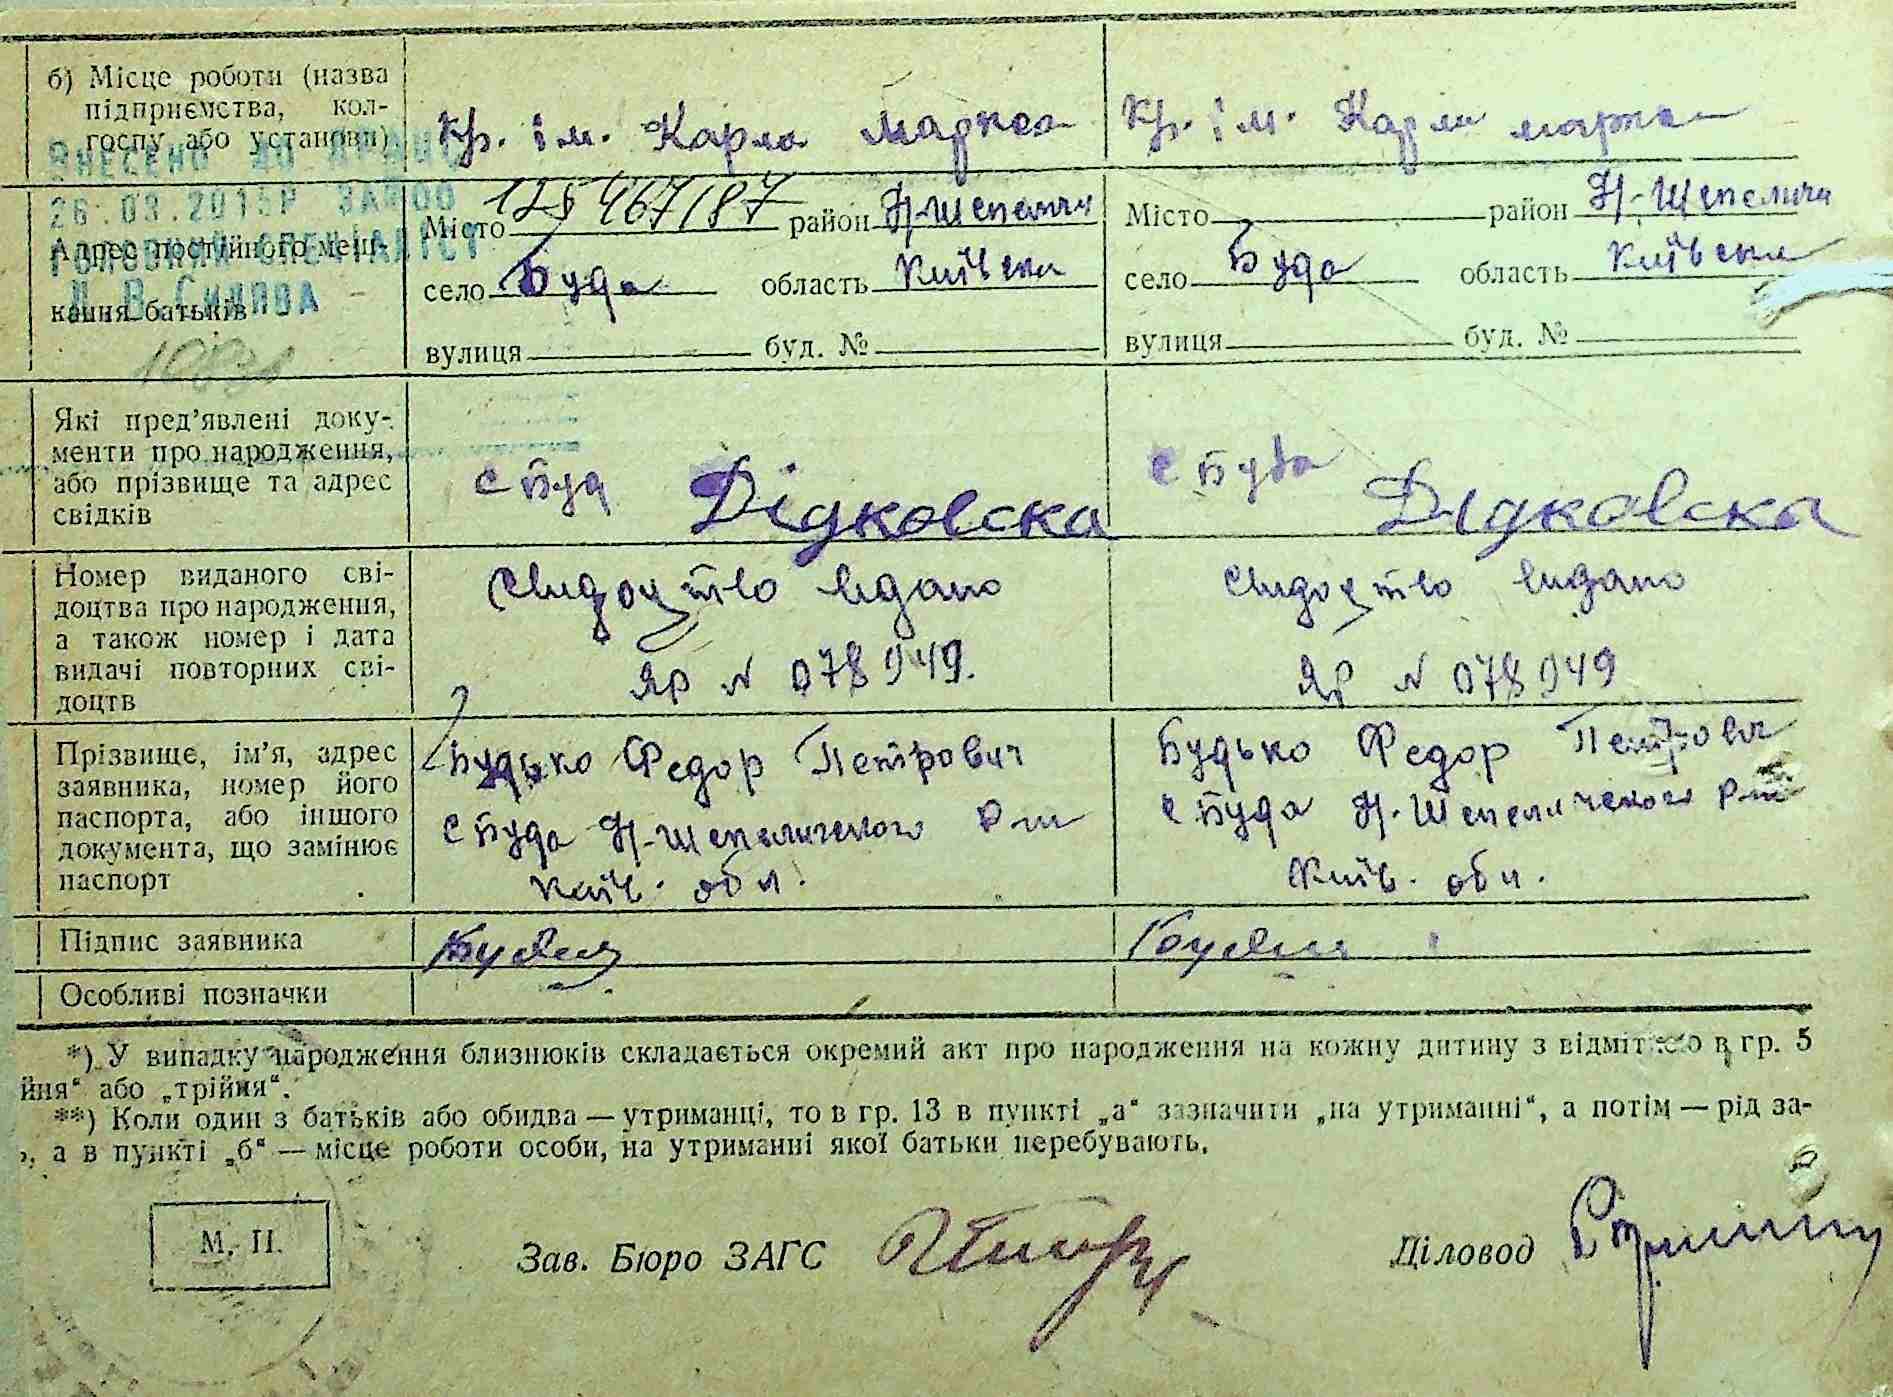 б) Місце роботи (назва
підприємства, кол-
госпу або установи)
Кр. ім. Карла Маркса
Кр. ім. Карла маркса
ВНЕСЕНО ДО
26.03.2015Р
ГОЛОВНИЙ СПЕЦІАЛІСТ
Адрес постійного меш-
кання батьків
Місто 125467/87 район Н-Шепеличи
село Буда область Київска
вулиця буд. №
Місто район Н-Шепеличи
село Буда область Київска
вулиця буд. №
Які пред’явлені доку-
менти про народження,
або прізвище та адрес
свідків
с Буд Дідковска
с Буда Дідковска
Номер виданого сві-
доцтва про народження,
а також номер і дата
видачі повторних сві-
доцтв
Свидоцтво видано
ЯР N 078949.
Свидоцтво видано
ЯР N 078949
Прізвище, ім’я, адрес
заявника, номер його
паспорта, або іншого
документа, що замінює
паспорт
Будько Федор Петрович
с Буда Н-Шепеличского Р-ну
Київ. обл.
Будько Федор Петрович
с Буда Н-Шепеличского Р-ну
Київ. обл.
Підпис заявника
Особливі позначки
*) У випадку народження близнюків складається окремий акт про народження на кожну дитину з відміткою в гр. 5
йня“ або „трійня“.
**) Коли один з батьків або обидва — утриманці, то в гр. 13 в пункті „а“ зазначити „на утриманні“, а потім — рід за-
, а в пункті „б“ — місце роботи особи, на утриманні якої батьки перебувають.
М. П.
Зав. Бюро ЗАГС
Діловод